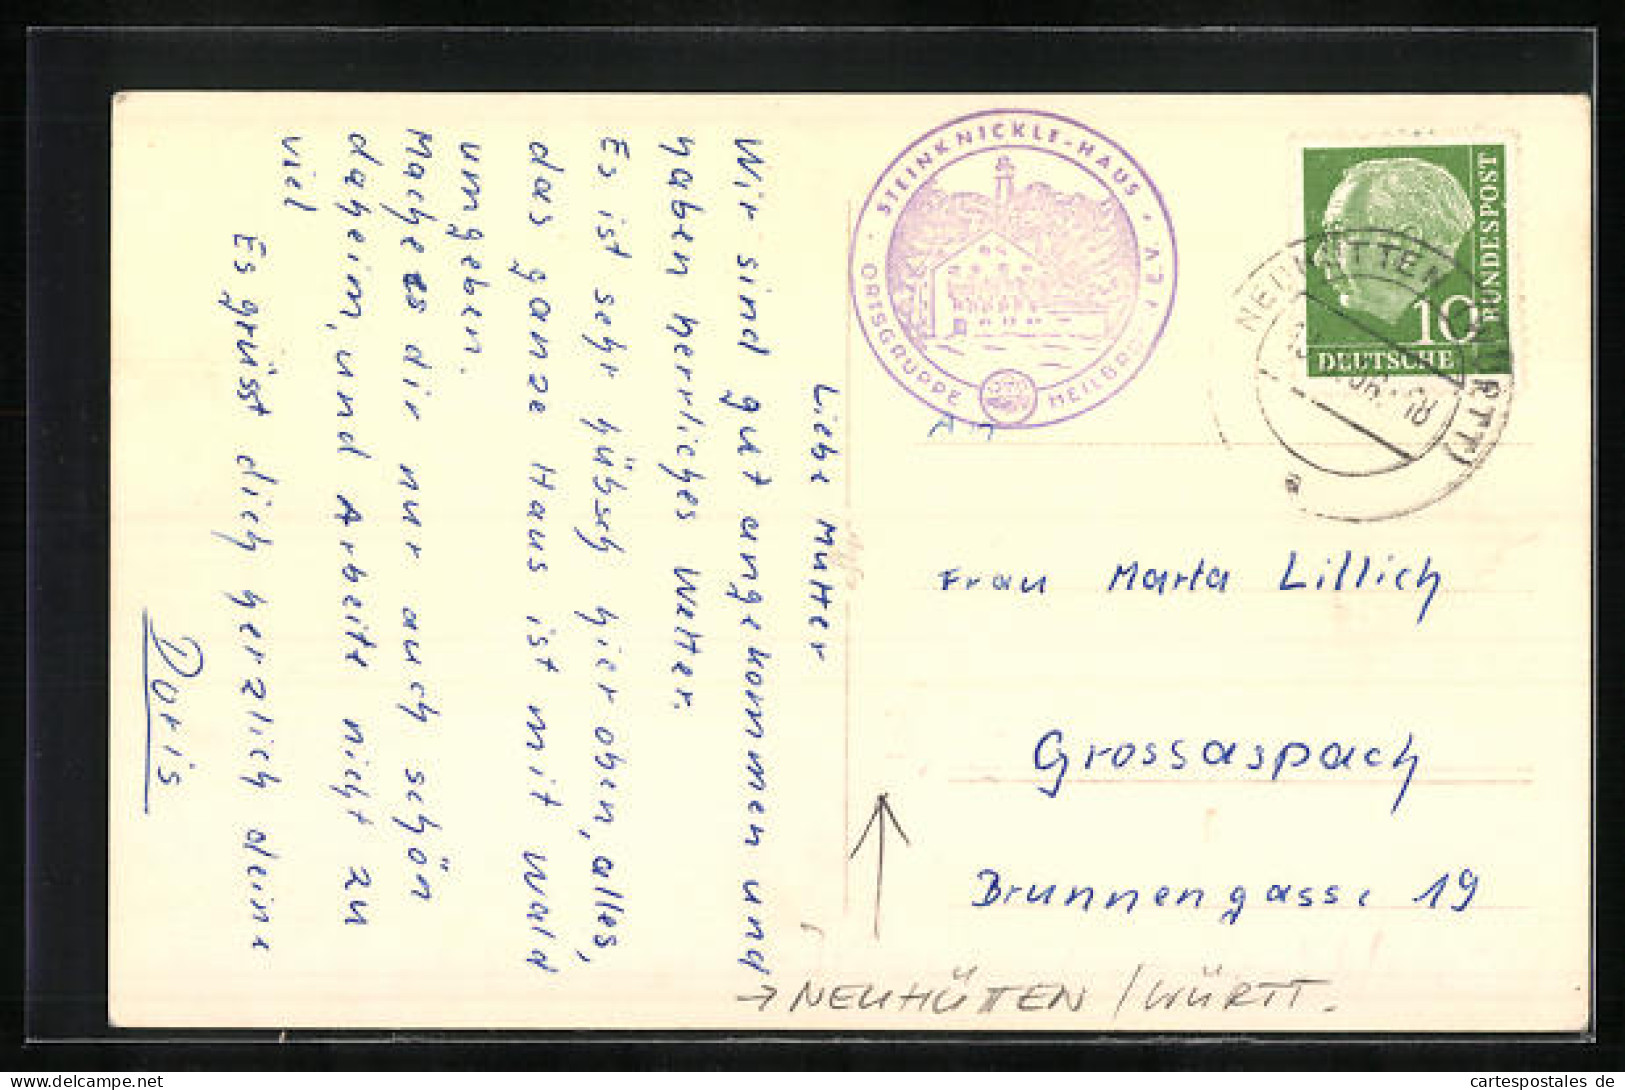 Liebe Mutter
Wir sind gut angekommen und
haben herrliches Wetter.
Es ist sehr hübsch hier oben, alles,
das ganze Haus ist mit Wald
umgeben.
Mache es dir nur auch schön
daheim, und Arbeite nicht zu
viel
Es grüsst dich herzlich deine
Doris
STEINKNICKLE-HAUS
ORTSGRUPPE
BUNDESPOST
10
DEUTSCHE
An
Frau Marta Lillich
Grossaspach
Brunnengasse 19
→ NEUHÜTTEN / WÜRTT.
www.cartespostales.de